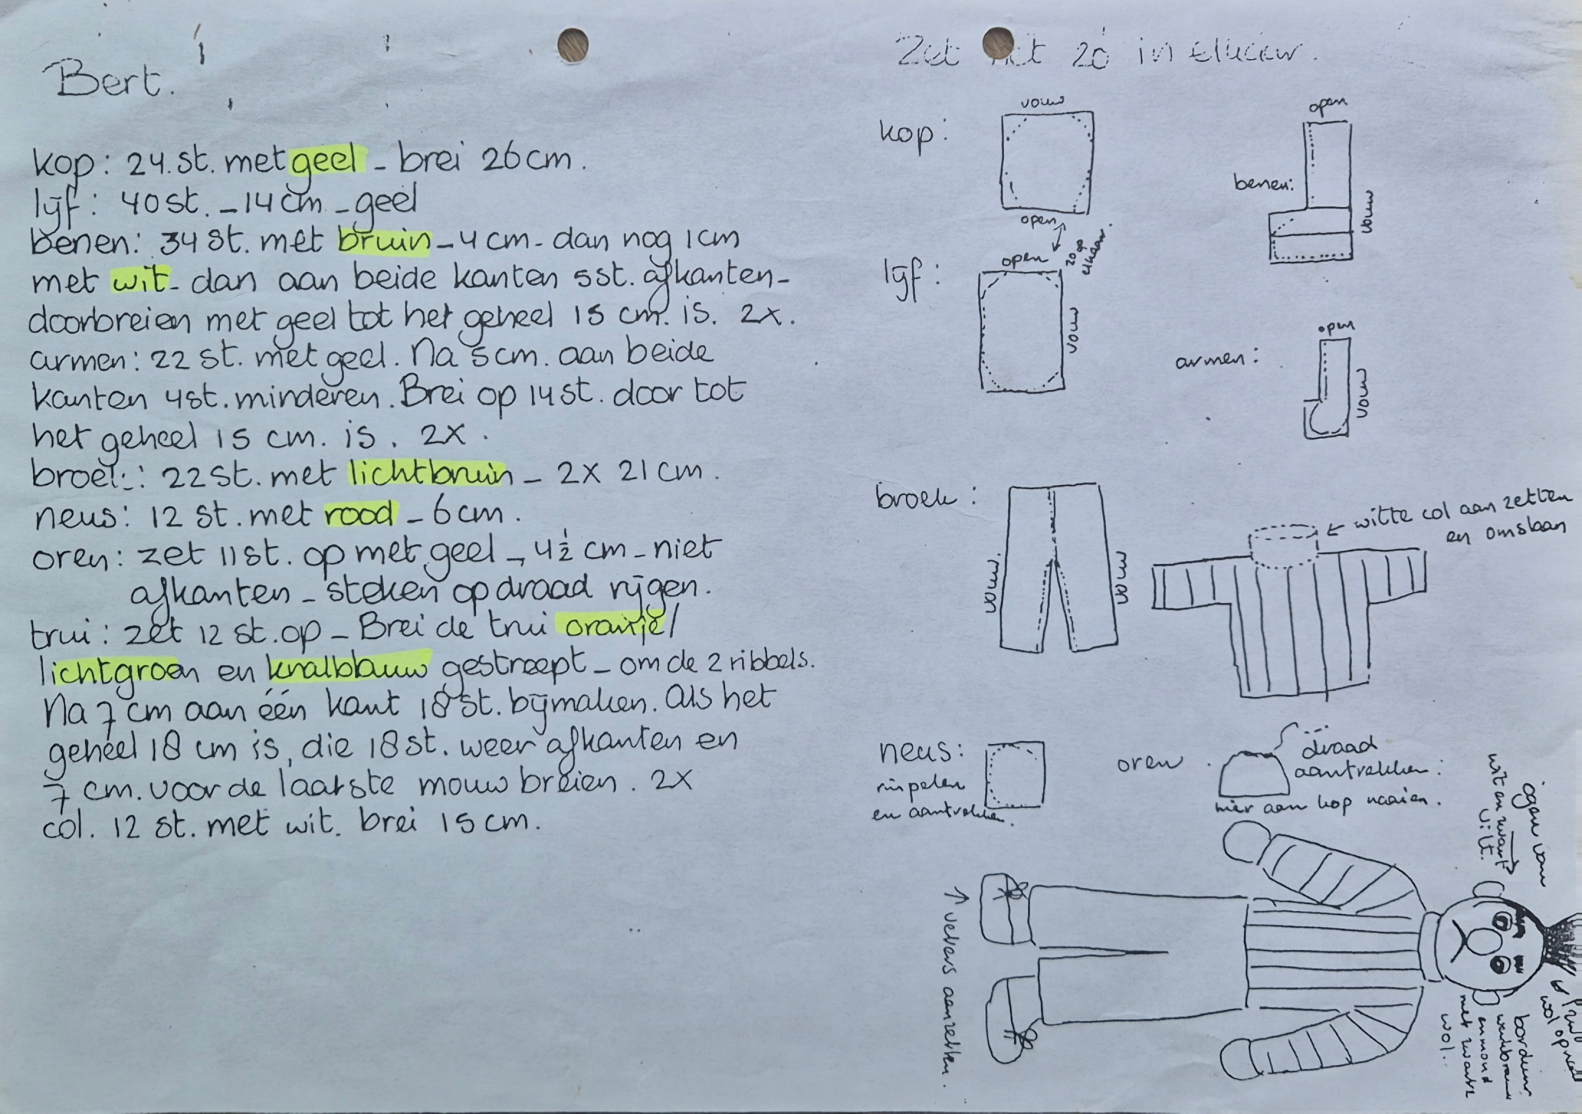 Bert.
kop: 24 st. met geel - brei 26 cm.
lijf: 40 st. - 14 cm - geel
benen: 34 st. met bruin - 4 cm - dan nog 1 cm
met wit - dan aan beide kanten 5 st. afkanten -
doorbreien met geel tot het geheel 15 cm. is. 2x.
armen: 22 st. met geel. Na 5 cm. aan beide
kanten 4 st. minderen. Brei op 14 st. door tot
het geheel 15 cm. is. 2x.
broek: 22 st. met lichtbruin - 2x 21 cm.
neus: 12 st. met rood - 6 cm.
oren: zet 11 st. op met geel - 4½ cm - niet
afkanten - steken op draad rijgen.
trui: zet 12 st. op - Brei de trui oranje/
lichtgroen en knalblauw gestreept - om de 2 ribbels.
Na 7 cm aan één kant 18 st. bijmaken. Als het
geheel 18 cm is, die 18 st. weer afkanten en
7 cm. voor de laatste mouw breien. 2x
col. 12 st. met wit. brei 15 cm.
Zet het zó in elkaar.
kop:
vouw
open
zo op
elkaar.
lijf:
open
vouw
benen:
open
vouw
armen:
open
vouw
broek:
vouw
vouw
witte col aan zetten
en omslaan
neus:
rimpelen
en aantrekken.
oren.
draad
aantrekken.
hier aan kop naaien.
veters aanzetten.
ogen van
wit en zwart
vilt.
wol op
borduur
wenkbrauw
en mond
met zwarte
wol.